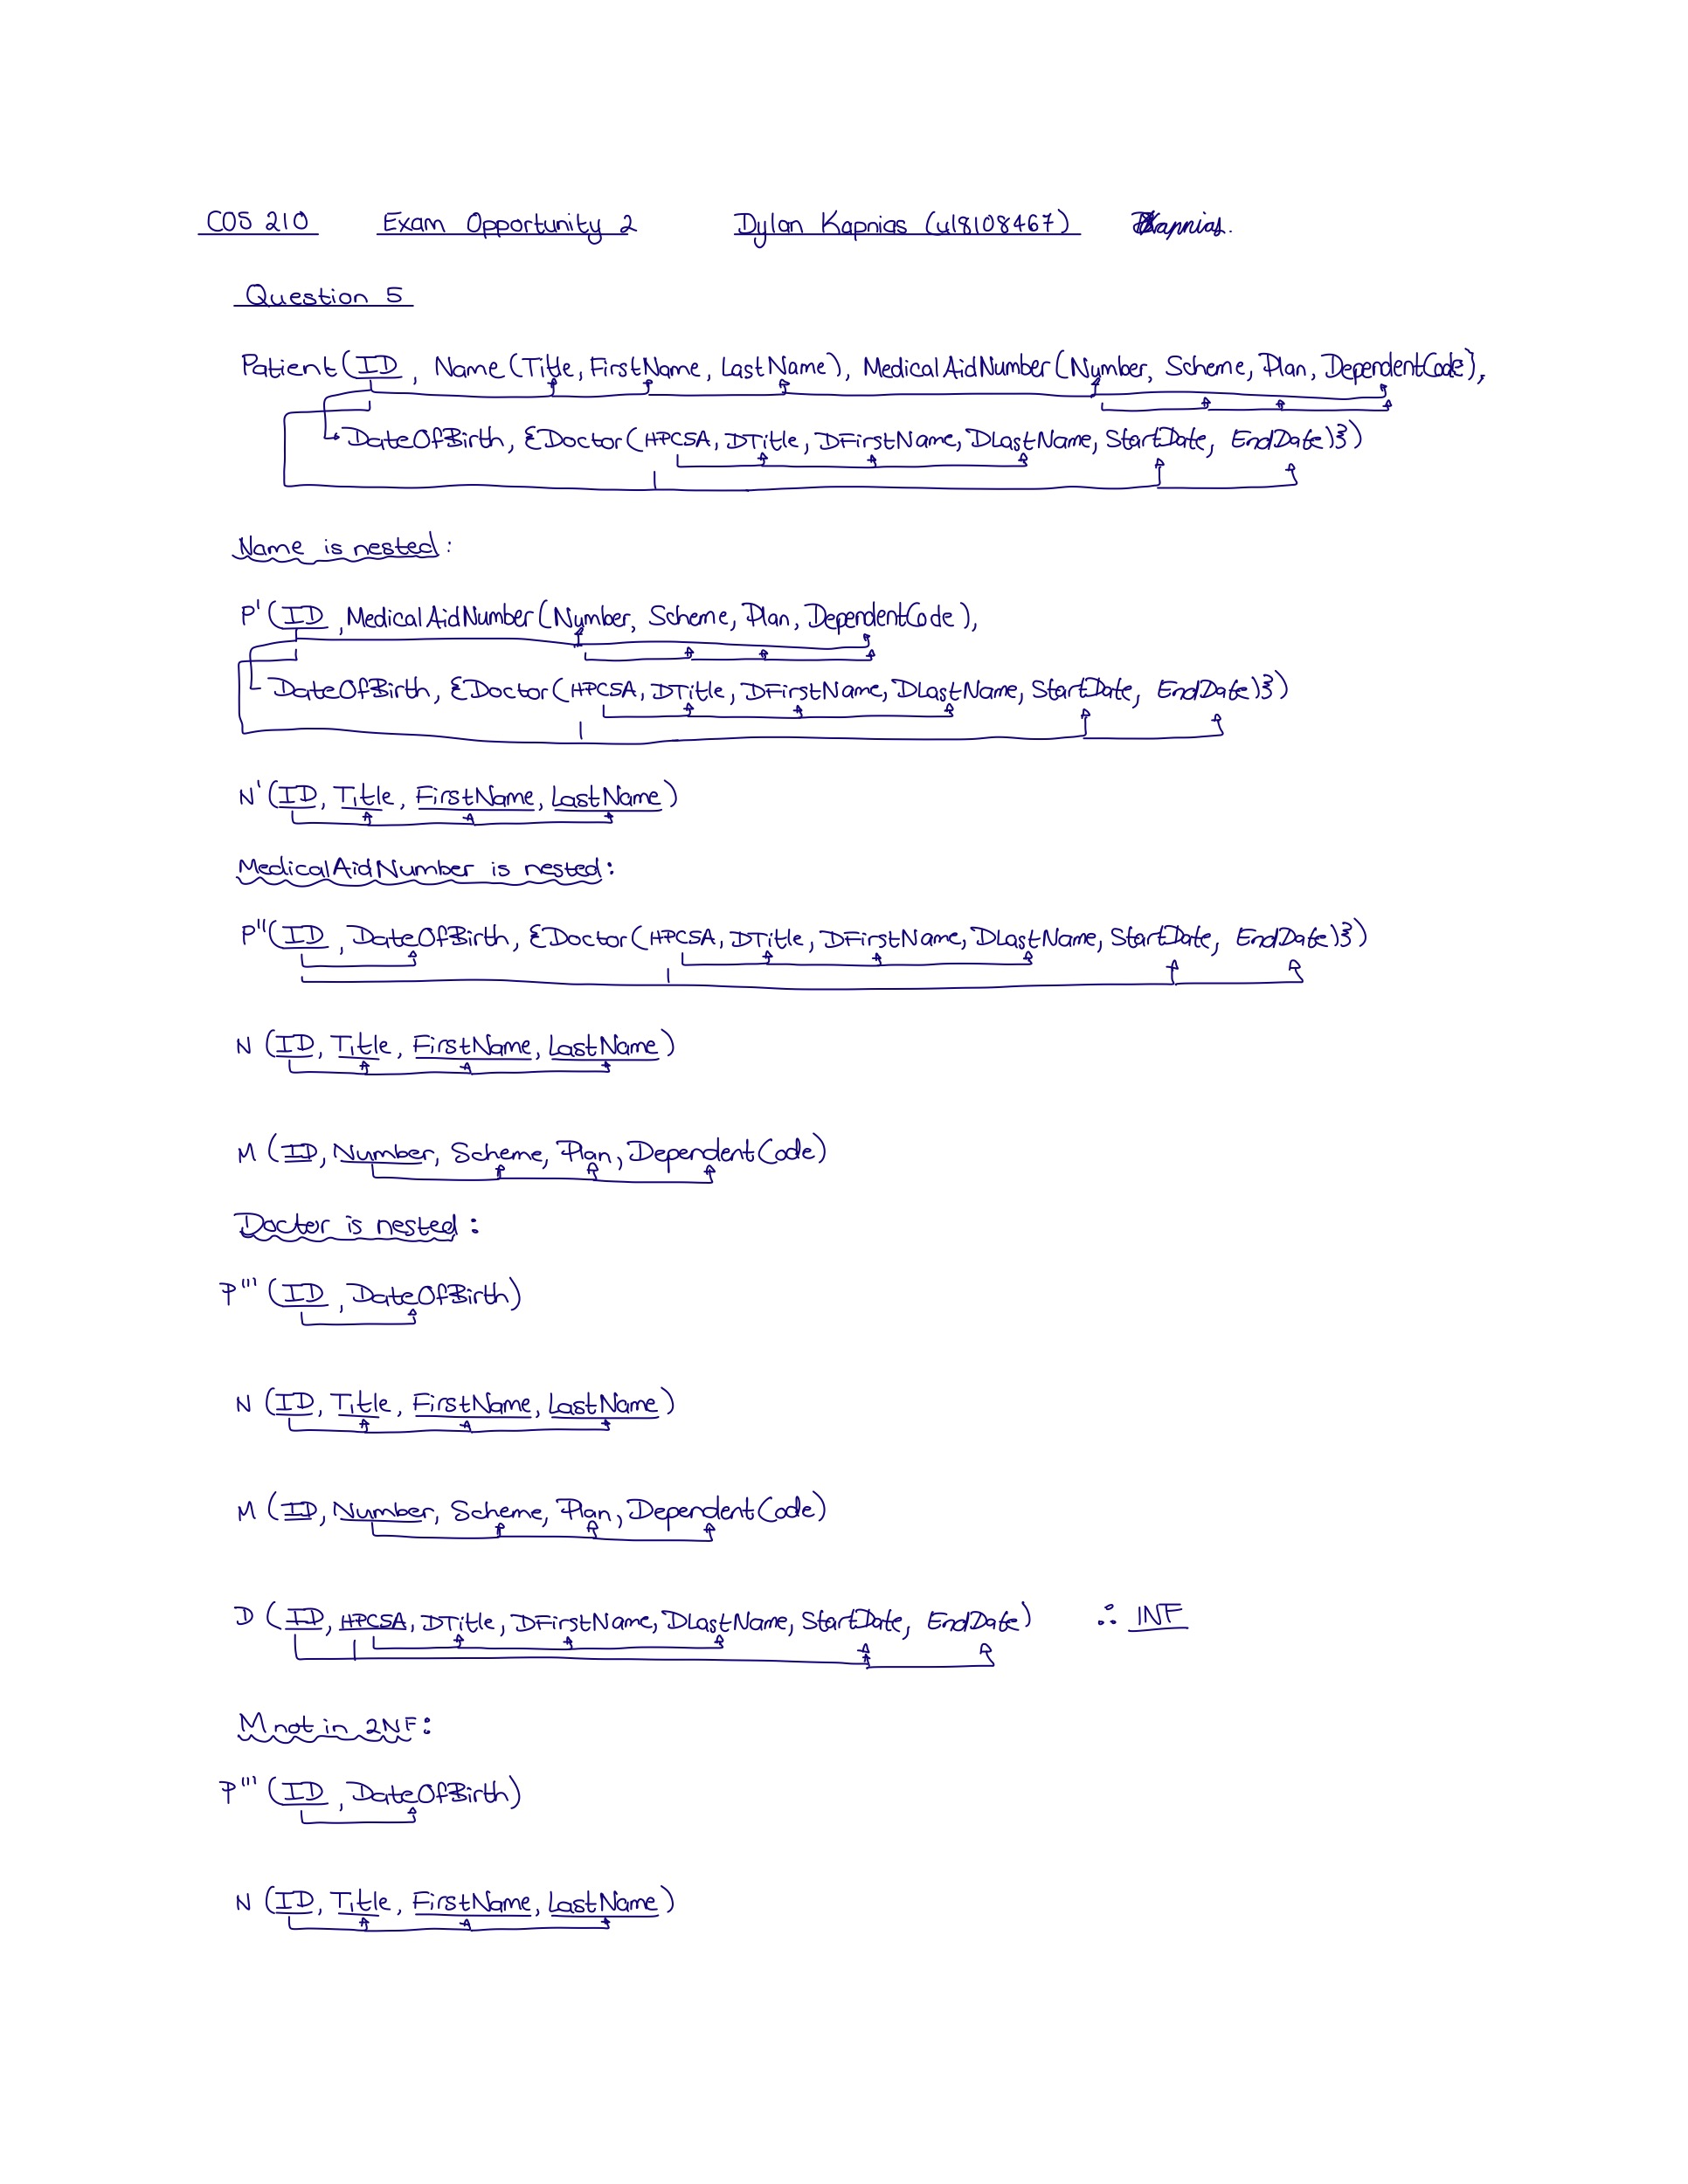 COS 210 Exam Opportunity 2 Dylan Kapnias (u18108467) DKapnias.
Question 5
Patient (ID, Name (Title, FirstName, LastName), MedicalAidNumber (Number, Scheme, Plan, DependentCode),
DateOfBirth, {Doctor (HPCSA, DTitle, DFirstName, DLastName, StartDate, EndDate)})
Name is nested:
P' (ID, MedicalAidNumber (Number, Scheme, Plan, DependentCode),
DateOfBirth, {Doctor (HPCSA, DTitle, DFirstName, DLastName, StartDate, EndDate)})
N' (ID, Title, FirstName, LastName)
MedicalAidNumber is nested:
P'' (ID, DateOfBirth, {Doctor (HPCSA, DTitle, DFirstName, DLastName, StartDate, EndDate)})
N (ID, Title, FirstName, LastName)
M (ID, Number, Scheme, Plan, DependentCode)
Doctor is nested:
P''' (ID, DateOfBirth)
N (ID, Title, FirstName, LastName)
M (ID, Number, Scheme, Plan, DependentCode)
D (ID, HPCSA, DTitle, DFirstName, DLastName, StartDate, EndDate) ∴ 1NF
M not in 2NF:
P''' (ID, DateOfBirth)
N (ID, Title, FirstName, LastName)